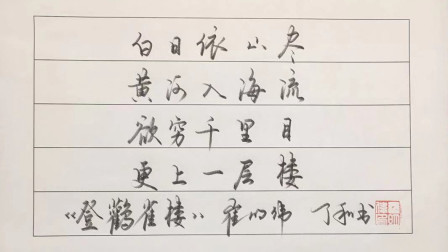 白日依山尽
黄河入海流
欲穷千里目
更上一层楼
《登鹳雀楼》 崔的炜 丁和书